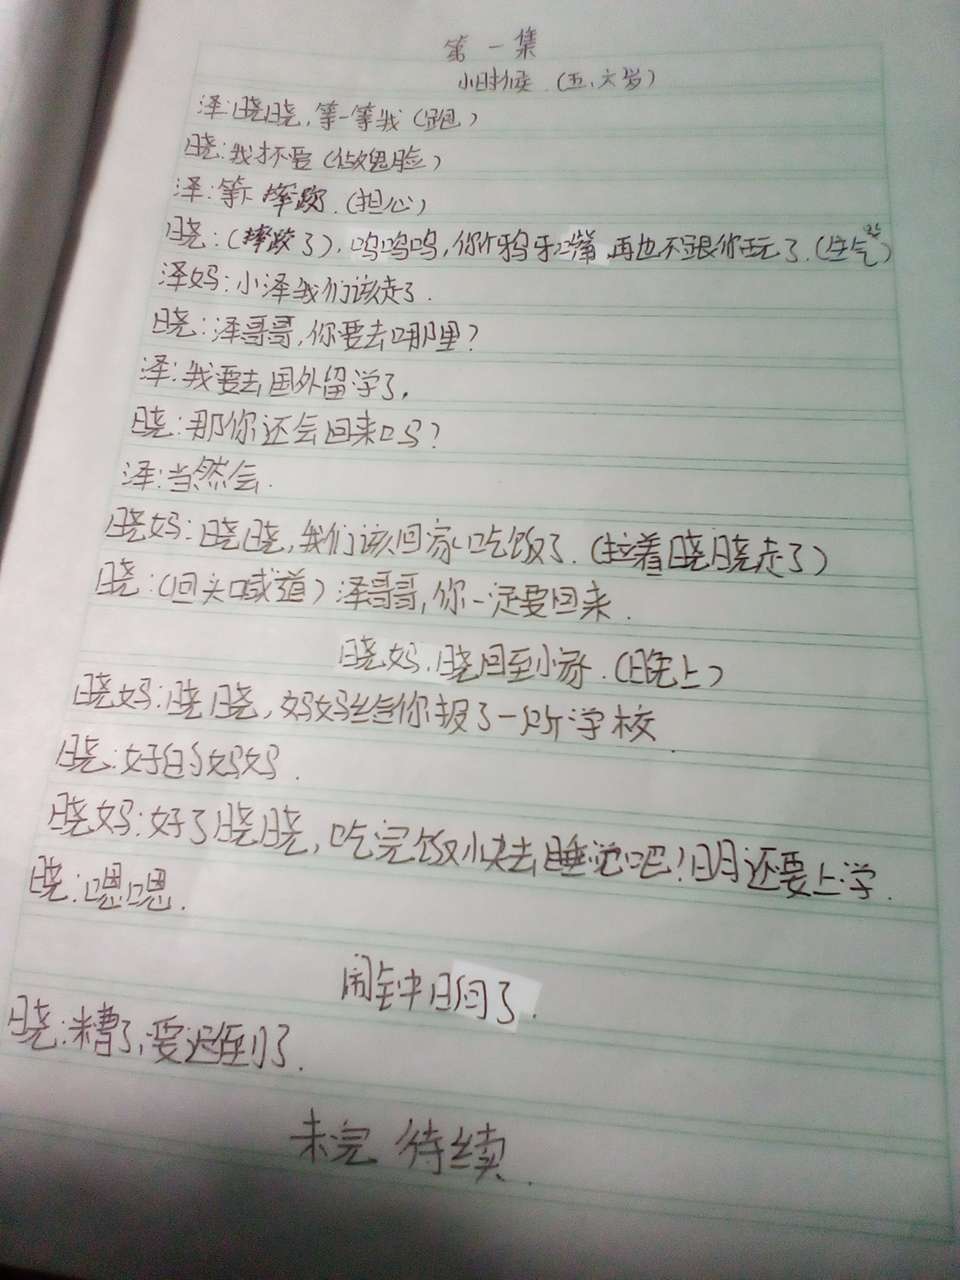 第一集
小时候.(五、六岁)
泽:晓晓,等一等我(跑)
晓:我才不要(做鬼脸)
泽:等下摔跤.(担心)
晓:(摔跤了).呜呜呜,你个鸦牙嘴,再也不跟你玩了.(生气)
泽妈:小泽我们该走了.
晓:泽哥哥,你要去哪里?
泽:我要去国外留学了.
晓:那你还会回来吗?
泽:当然会.
晓妈:晓晓,我们该回家吃饭了.(拉着晓晓走了)
晓:(回头喊道)泽哥哥,你一定要回来.
晓妈.晓回到小家.(晚上)
晓妈:晓晓,妈妈给你报了一所学校.
晓:好的妈妈.
晓妈:好了晓晓,吃完饭快去睡觉吧!明还要上学.
晓:嗯嗯.
闹钟了.
晓:糟了,要迟到了.
未完待续.